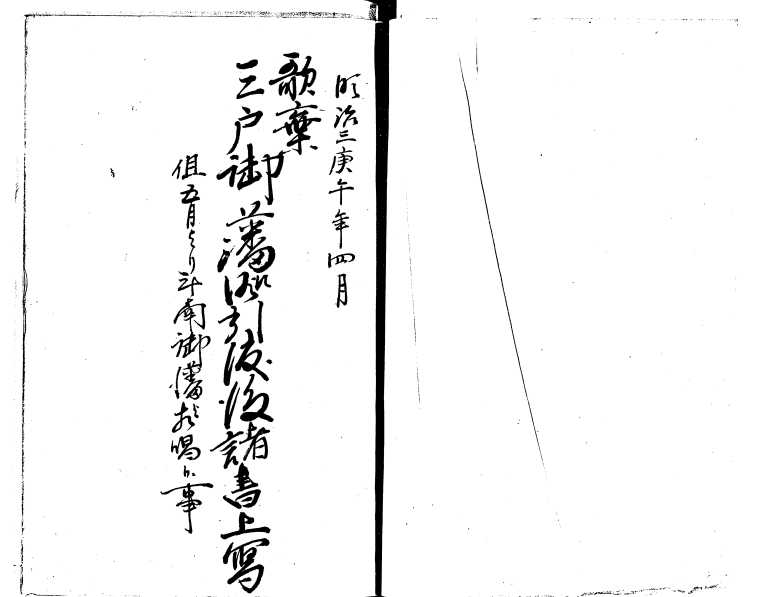 明治三庚午年四月
歌棄
三戸御藩江引渡後諸書上写
但五月より斗南御藩与唱候事